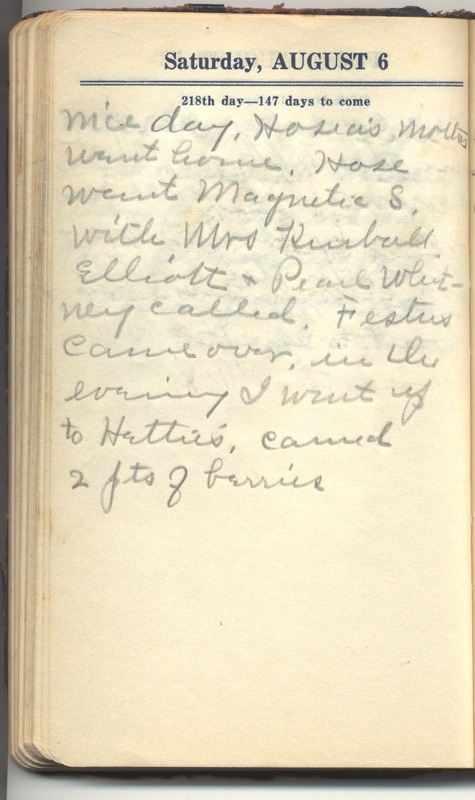 Saturday, AUGUST 6
218th day—147 days to come
Nice day, Hosea's Mother
went home, Hose
went Magnetic S.
with Mrs Kimball
Elliott & Pearl Whit-
ney called. Festus
came over, in the
evening I went up
to Hettie's, canned
2 pts of berries